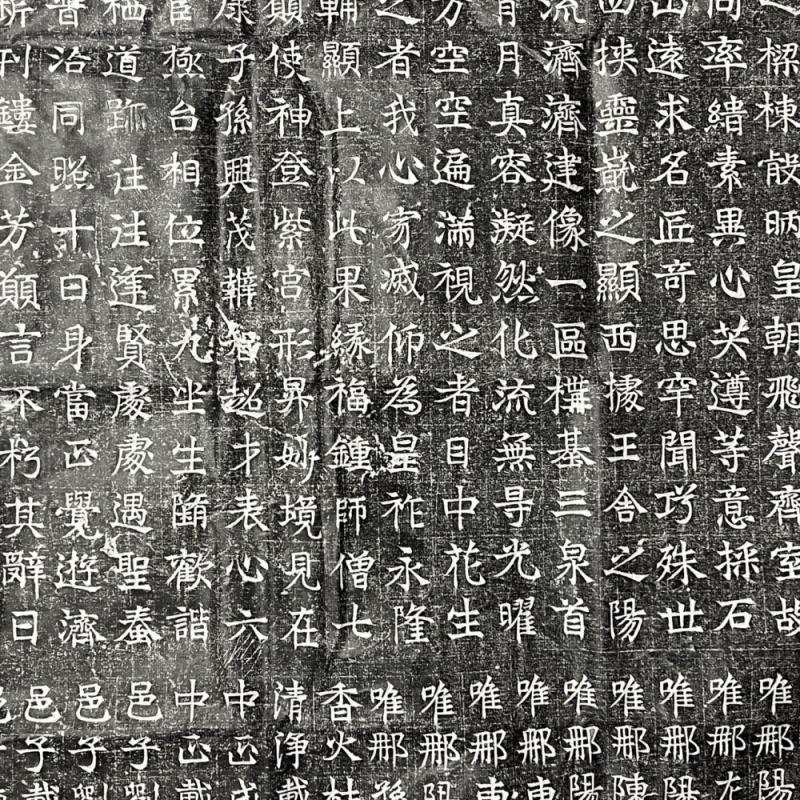 樑棟設昞皇朝飛聲齊室故
率素異心共遵等意採石
山遠求名匠奇思罕聞巧殊世
西挾靈嶽之顯西據王舍之陽
流濟濟建像一區樸基三泉首
月真容凝然化流無导光曜
方空空遍滿視之者目中花生
之者我心家滅仰為皇祚永隆
輔顯上以此果緣福鍾師僧七
願使神登紫宮形昇妙境見在
康子孫興茂辯智超才表心六
宦極台相位累九坐生隨歡諧
栖道跡往往逢賢處處遇聖泰
普沿同照十日身當正覺遊濟
斯刊鏤金芳願言不朽其辭曰
唯那陽
唯那左
唯那
唯那陳
唯那陽
唯那
唯那
唯那
唯那孫
香火杜
清淨戴
中正
中正戴
邑子劉
邑子劉
邑子戴
邑